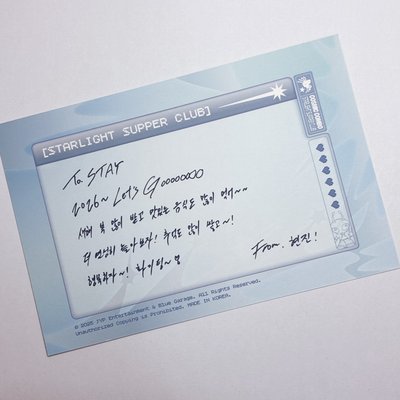 [STARLIGHT SUPPER CLUB]
To STAY
2026~ Let's Goooooooo
새해 복 많이 받고 맛있는 음식도 많이 먹어~~
더 열심히 놀아보자! 추억도 많이 쌓고~!
행복하자~! 화이티~
From. 현진!
© 2025 JYP Entertainment & Blue Garage. All Rights Reserved.
Unauthorized Copying is Prohibited. MADE IN KOREA.